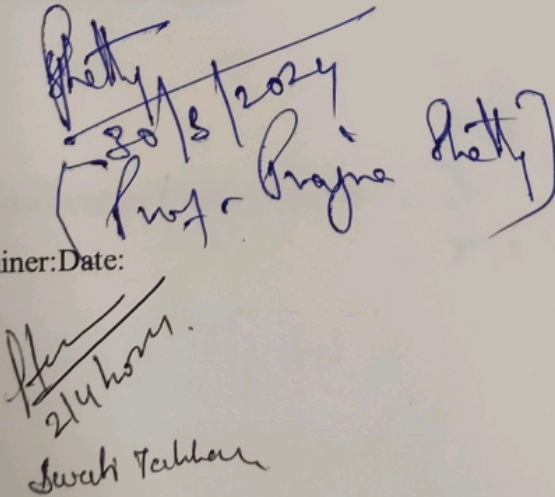 Shetty
30/3/2024
[Prof. Prajna Shetty]
iner:Date:
2/4/2024
Swati